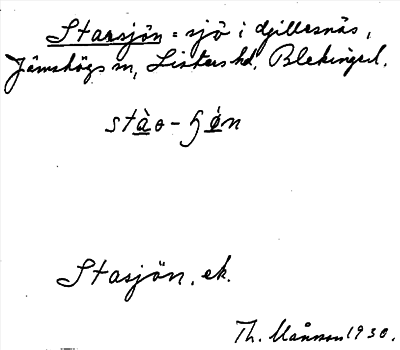 Stassjön = sjö i Gillesnäs,
Jämshögs sn, Listers hd, Blekinge l.
stào - ɧǿn
Stasjön. ek.
Th. Månsson 1930.